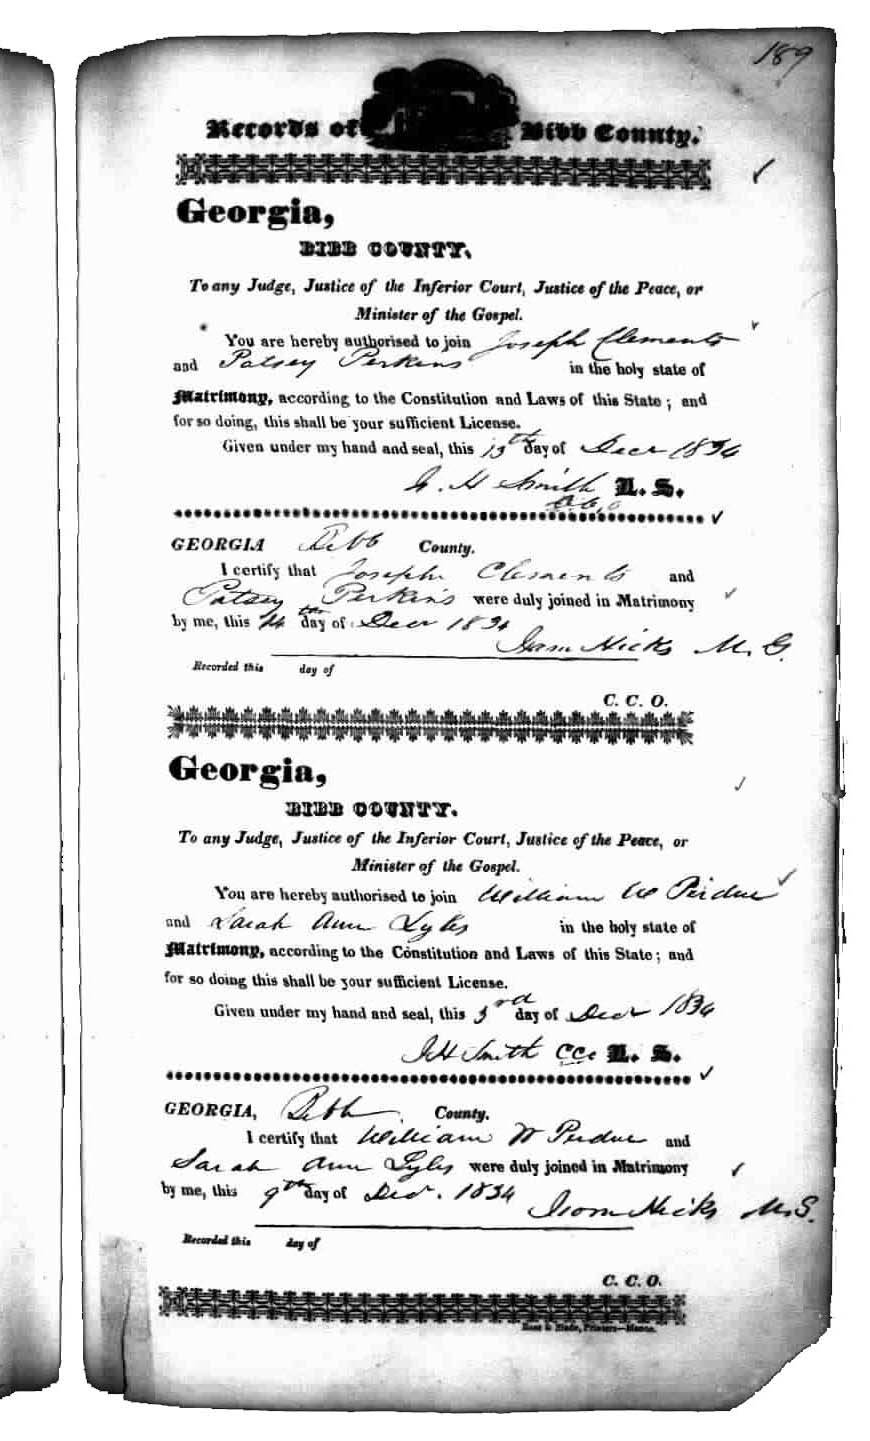 189
Records of Bibb County.
Georgia,
BIBB COUNTY.
To any Judge, Justice of the Inferior Court, Justice of the Peace, or
Minister of the Gospel.
You are hereby authorised to join Joseph Clements
and Patsey Perkins in the holy state of
Matrimony, according to the Constitution and Laws of this State; and
for so doing, this shall be your sufficient License.
Given under my hand and seal, this 13th day of Decr 1834
H Smith L. S.
GEORGIA Bibb County.
I certify that Joseph Clements and
Patsey Perkins were duly joined in Matrimony
by me, this 14th day of Decr 1834
Isam Hicks M. G.
Recorded this day of
C. C. O.
Georgia,
BIBB COUNTY.
To any Judge, Justice of the Inferior Court, Justice of the Peace, or
Minister of the Gospel.
You are hereby authorised to join William W Perdue
and Sarah Ann Lyles in the holy state of
Matrimony, according to the Constitution and Laws of this State; and
for so doing this shall be your sufficient License.
Given under my hand and seal, this 3rd day of Decr 1834
H Smith CCO L. S.
GEORGIA, Bibb County.
I certify that William W Perdue and
Sarah Ann Lyles were duly joined in Matrimony
by me, this 9th day of Decr. 1834
Isom Hicks M.G.
Recorded this day of
C. C. O.
Printers—Macon.